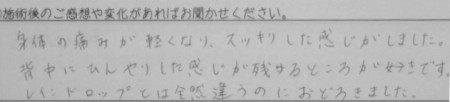 施術後のご感想や変化があればお聞かせください。
身体の痛みが軽くなり、スッキリした感じがしました。
背中にひんやりした感じが残るところが好きです。
レインドロップとは全然違うのにおどろきました。